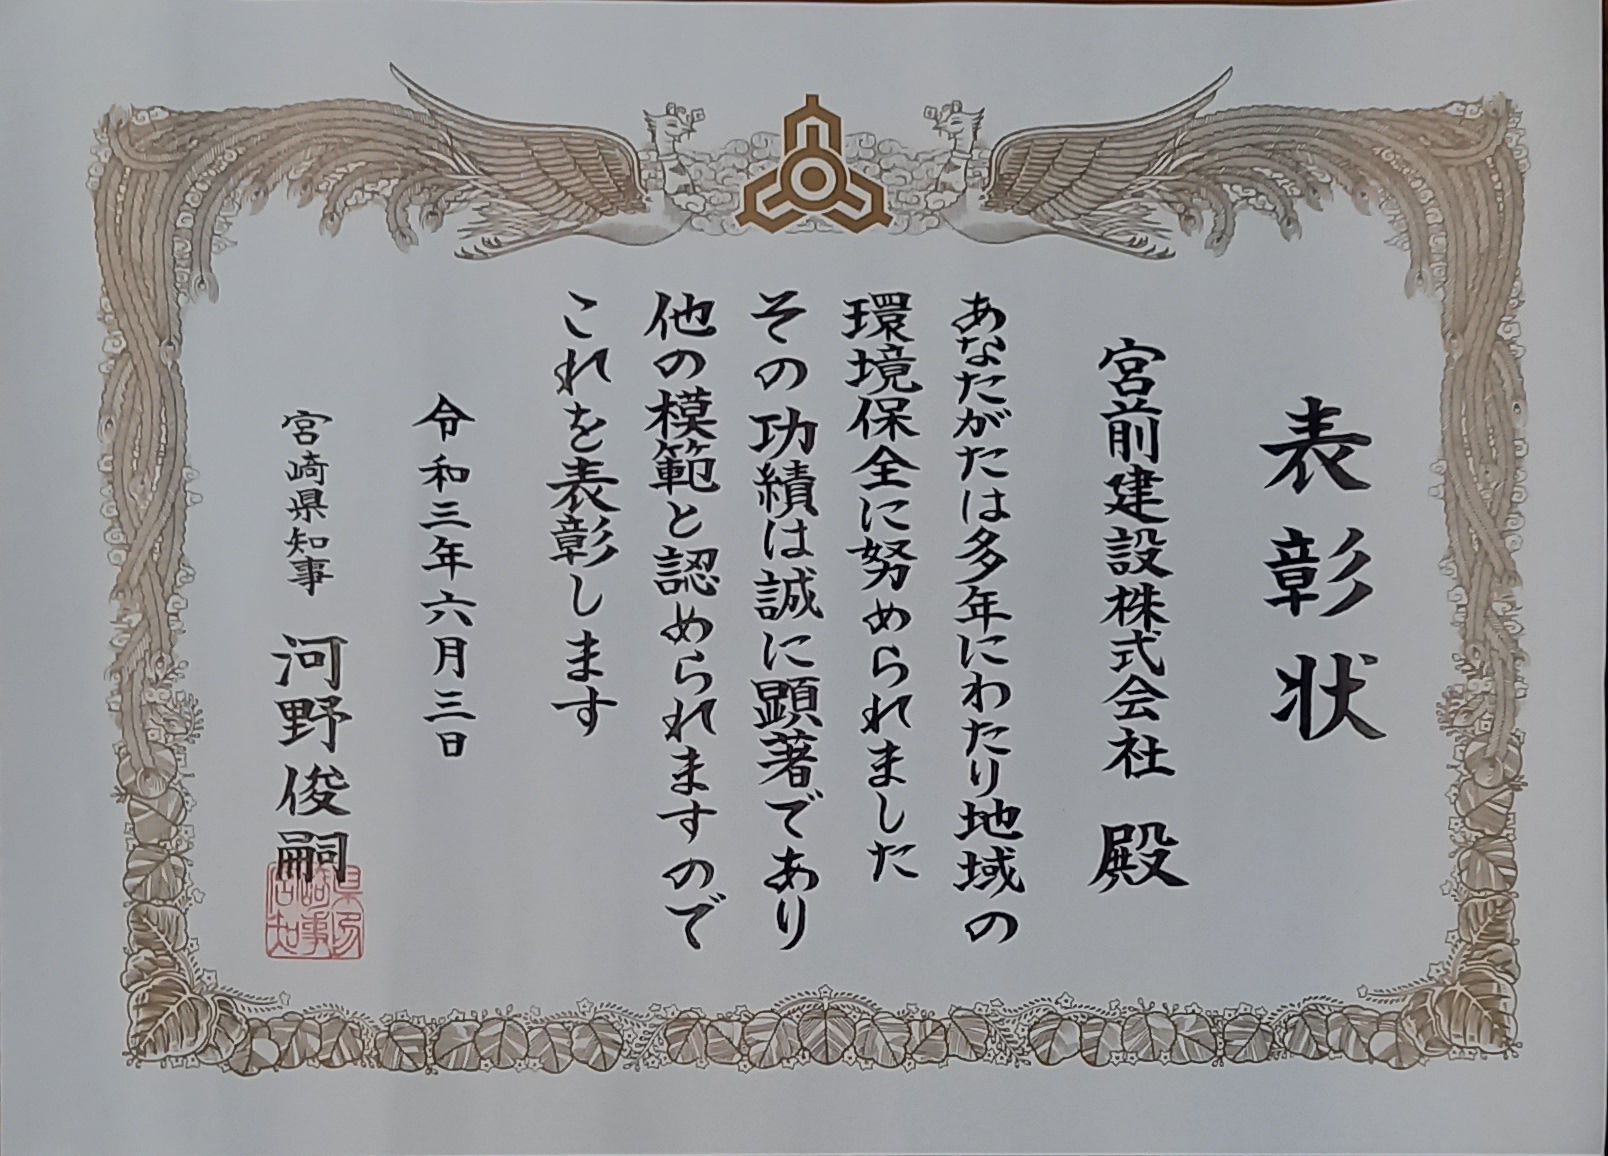 表彰状
宮前建設株式会社 殿
あなたがたは多年にわたり地域の
環境保全に努められました
その功績は誠に顕著であり
他の模範と認められますので
これを表彰します
令和三年六月三日
宮崎県知事 河野俊嗣